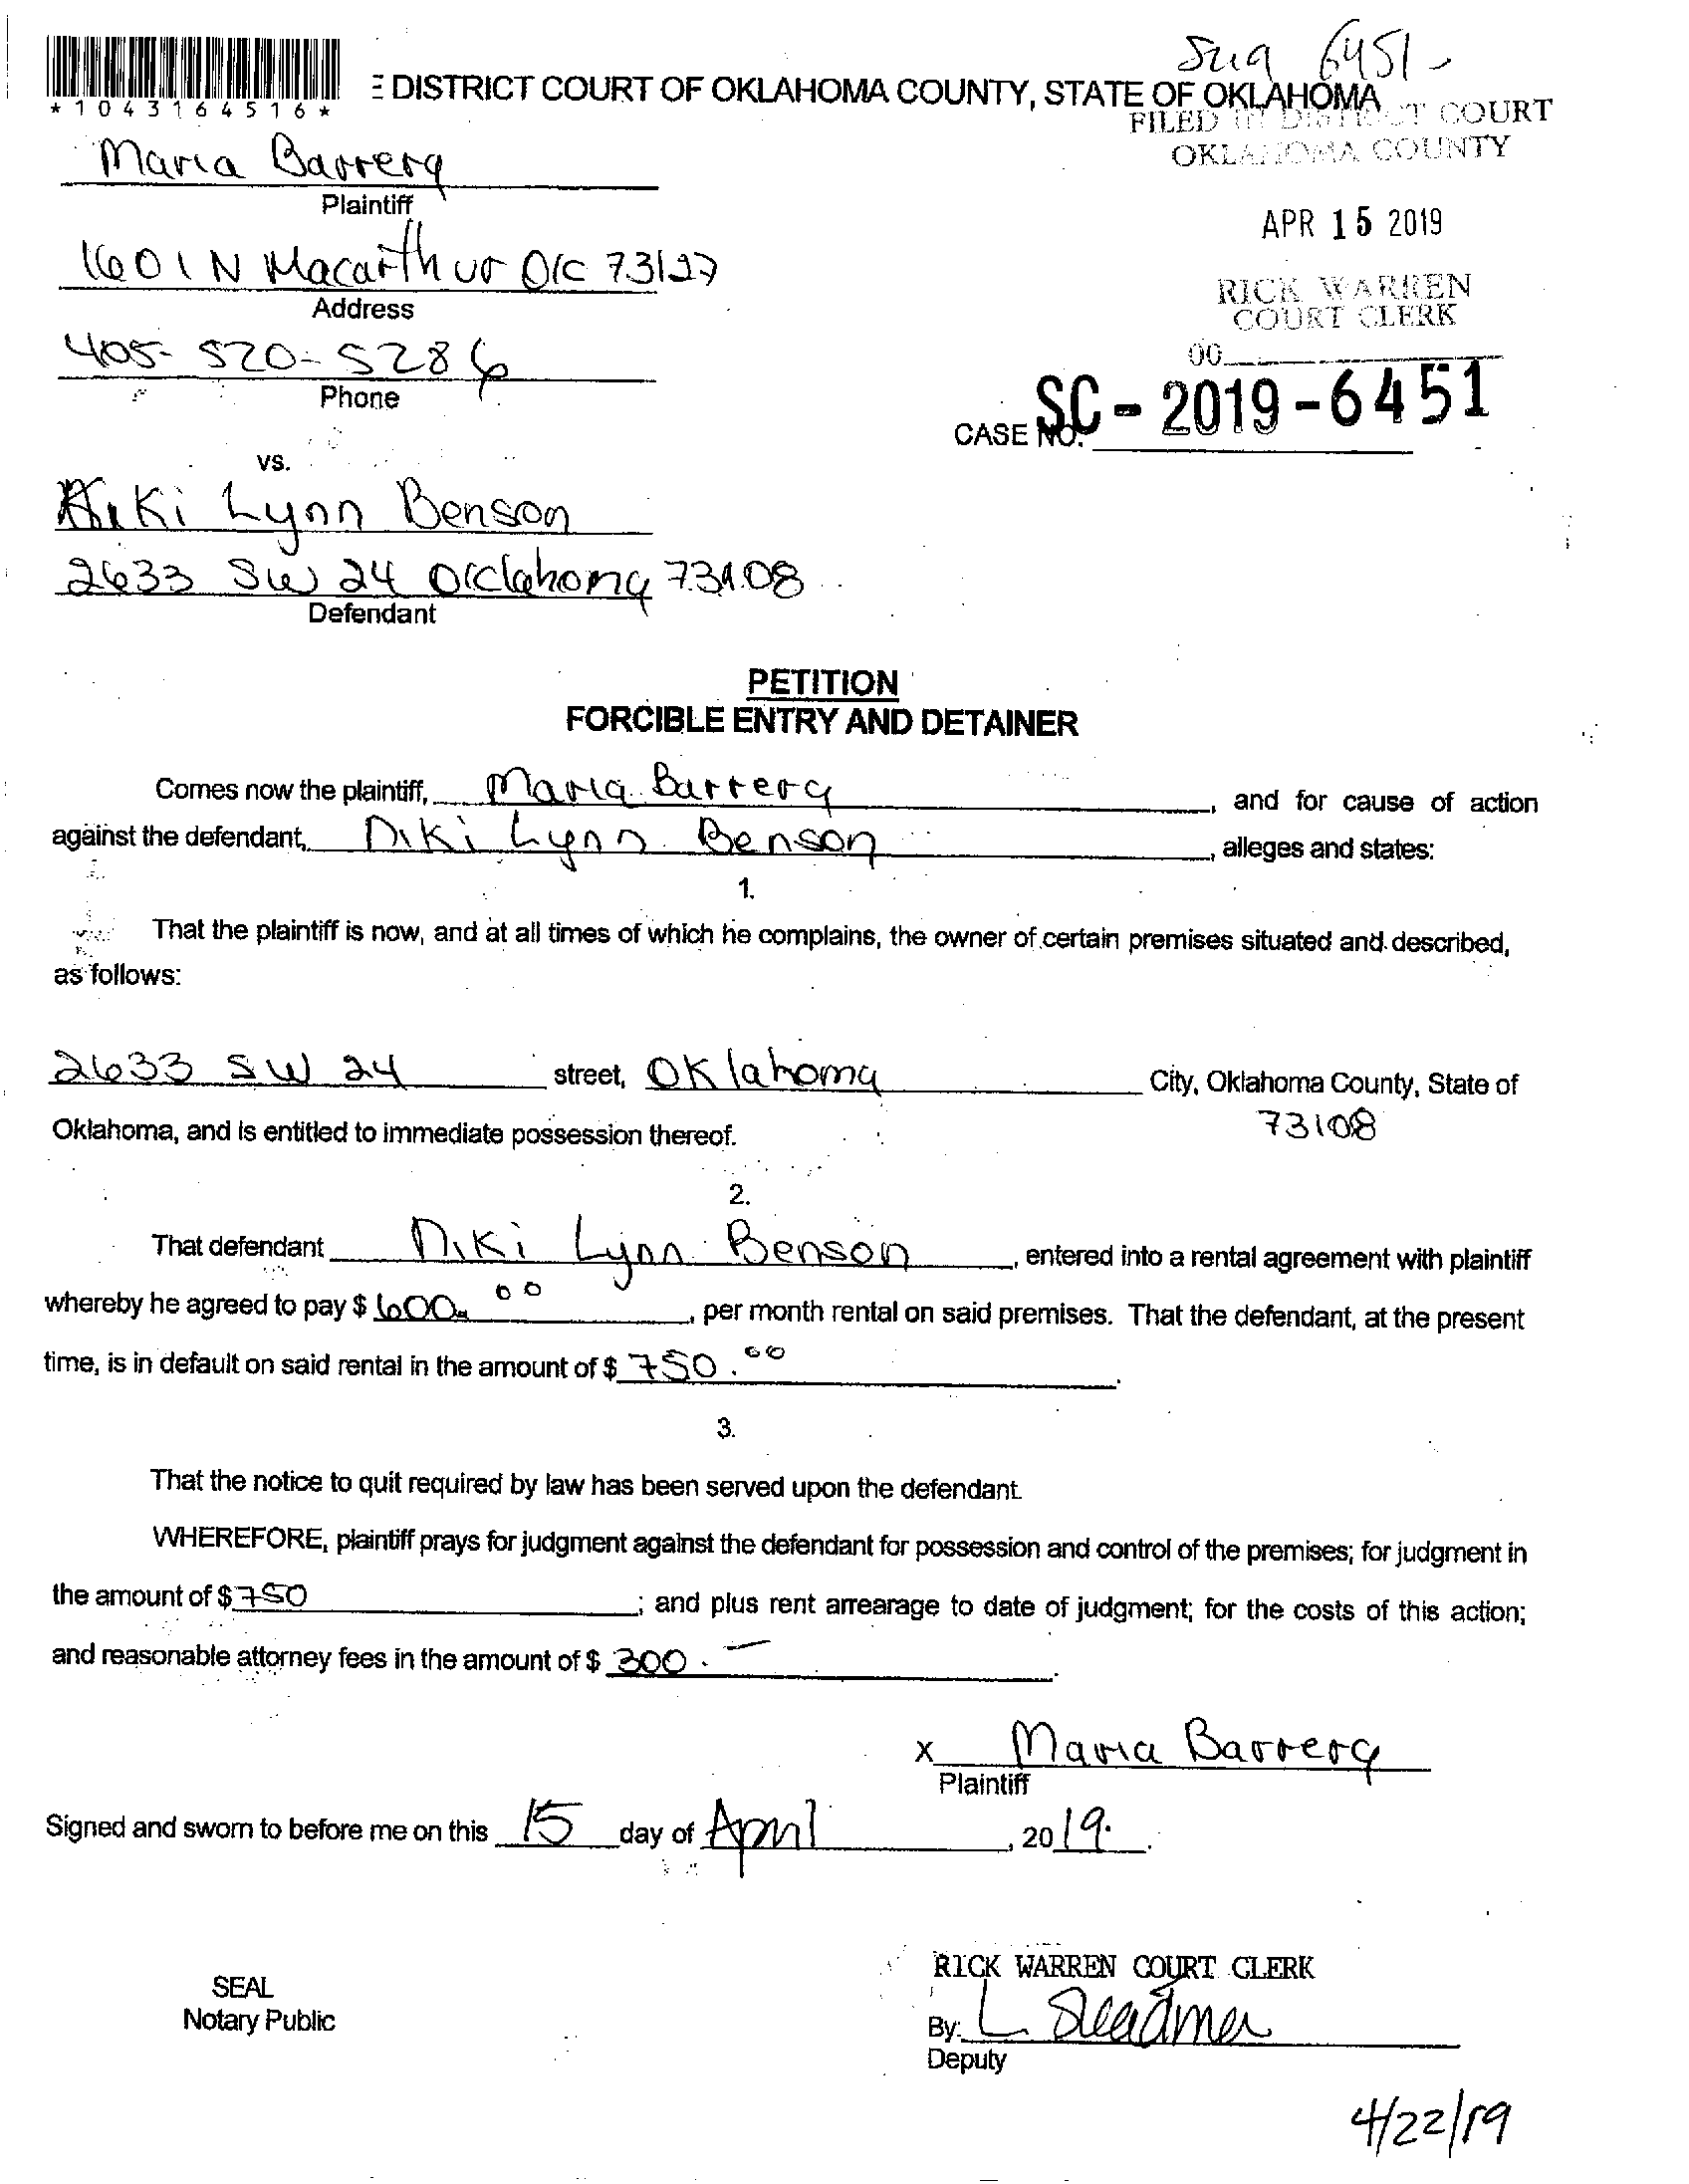 6451
DISTRICT COURT OF OKLAHOMA COUNTY, STATE OF OKLAHOMA
*1043164516*
FILED IN DISTRICT COURT
OKLAHOMA COUNTY
Maria Barrera
Plaintiff
APR 15 2019
1601 N Macarthur OKC 73127
Address
RICK WARREN
COURT CLERK
405-520-5286
Phone
00
CASE NO. SC-2019-6451
vs.
Niki Lynn Benson
2633 SW 24 Oklahoma 73108
Defendant
PETITION
FORCIBLE ENTRY AND DETAINER
Comes now the plaintiff, Maria Barrera, and for cause of action
against the defendant, Niki Lynn Benson, alleges and states:
1.
That the plaintiff is now, and at all times of which he complains, the owner of certain premises situated and described,
as follows:
2633 SW 24 street, Oklahoma City, Oklahoma County, State of
Oklahoma, and is entitled to immediate possession thereof. 73108
2.
That defendant Niki Lynn Benson, entered into a rental agreement with plaintiff
whereby he agreed to pay $ 600.00, per month rental on said premises. That the defendant, at the present
time, is in default on said rental in the amount of $ 750.00.
3.
That the notice to quit required by law has been served upon the defendant.
WHEREFORE, plaintiff prays for judgment against the defendant for possession and control of the premises; for judgment in
the amount of $ 750; and plus rent arrearage to date of judgment; for the costs of this action;
and reasonable attorney fees in the amount of $ 300.—.
x Maria Barrera
Plaintiff
Signed and sworn to before me on this 15 day of April, 2019.
RICK WARREN COURT CLERK
SEAL
Notary Public
By: L Steadman
Deputy
4/22/19